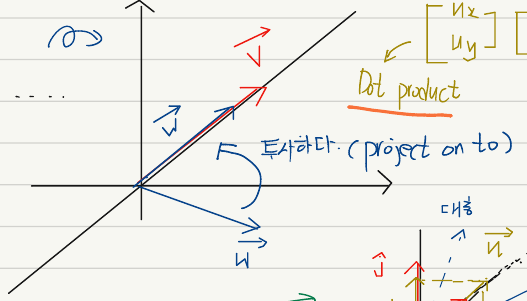 [ u_x
u_y ] [
V
Dot product
W
투사하다. (project on to)
W
대충
ĵ
u